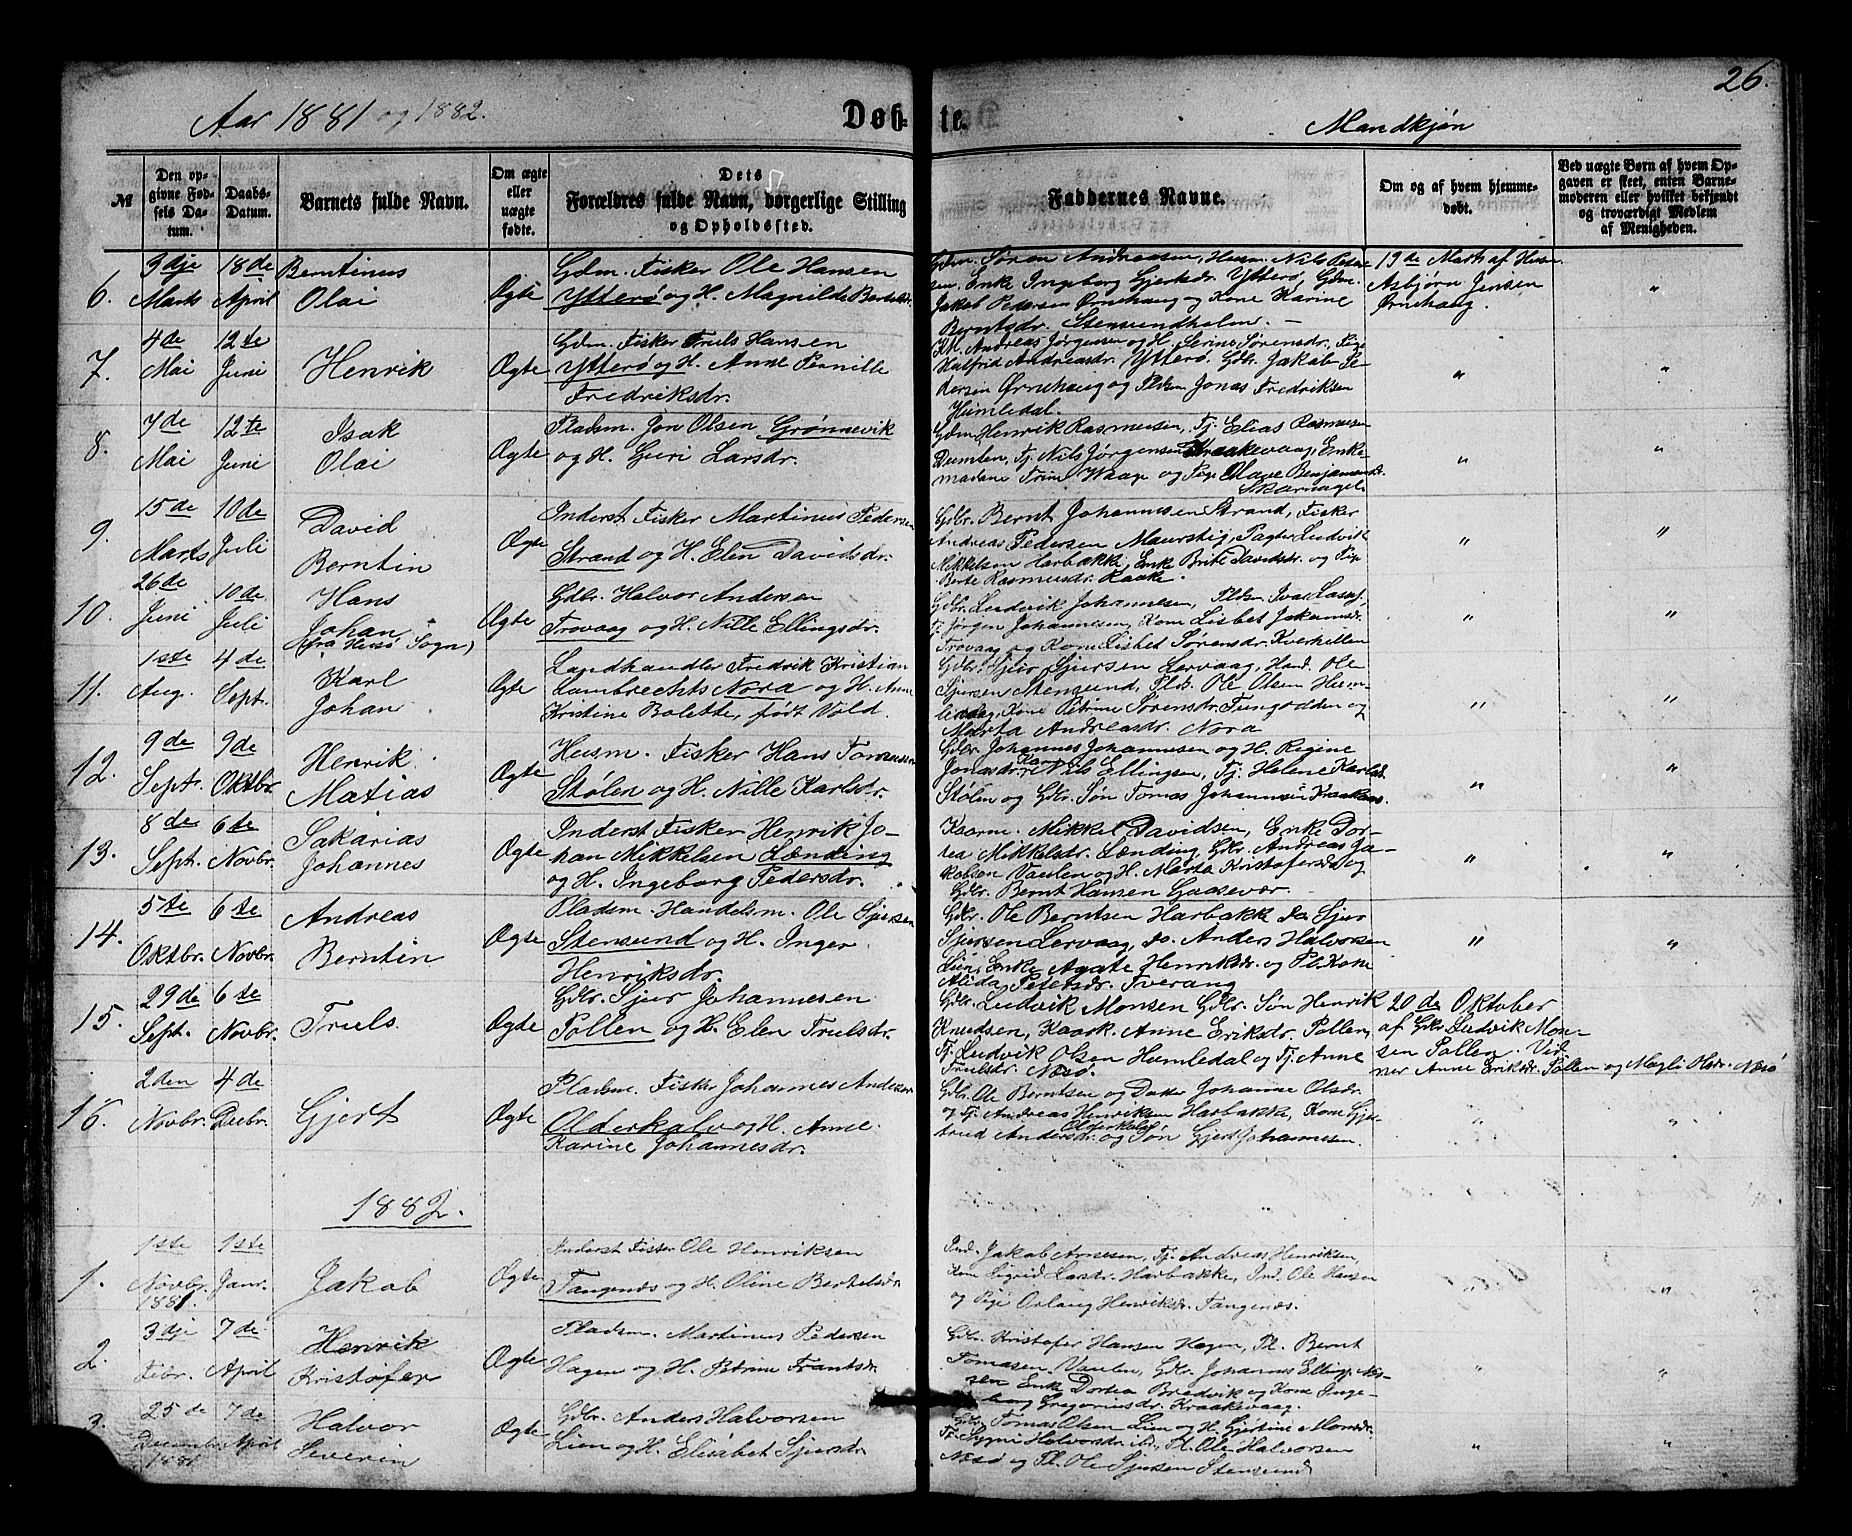 26.
Aar 1881 og 1882.
Døbte.
Mandkjøn
№
Den opgivne Fødsels Datum.
Daabs-Datum.
Barnets fulde Navn.
Om ægte eller uægte fødte.
Dets Forældres fulde Navn, borgerlige Stilling og Opholdssted.
Faddernes Navne.
Om og af hvem hjemmedøbt.
Ved uægte Børn af hvem Opgaven er skeet, enten Barnemoderen eller hvilket bekjendt og troværdigt Medlem af Menigheden.
6.
3dje Marts
18de April
Berntinus
Olai
Ægte
Gdm. Fisker Ole Hansen
Ytterø og H. Magnilde Bertelsdr.
Gdm. Søren Andreassen, Husm. Nils Peter-
sen. Enke Ingeborg Gjertsdr. Ytterø, Gdm.
Jakob Pedersen Ørnehaug og Kone Karine
Berntsdr. Stensundholm. —
19de Marts af Husm.
Asbjørn Jensen
Ørnehaug.
"
7.
4de Mai
12te Juni
Henrik
Ægte
Gdm. Fisker Truls Hansen
Ytterø og H. Anne Pernille
Fredriksdr.
Andreas Jørgensen og H. Serine Sørensdr., Pige
Halfrid Andreasdr. Ytterø Gdbr. Jakob Pe-
dersen Ørnehaug og Pldsm Jonas Fredriksen
Humledal.
"
"
8.
7de Mai
12te Juni
Isak
Olai
Ægte
Pladsm. Jon Olsen Grønnevik
og H. Guri Larsdr.
Gdm. Henrik Rasmussen, Tj. Elias Rasmussen
Dumlen, Tj. Nils Jørgensen Kraakevaag, Enke-
madam Trine Waage og Pige Olave Benjaminsdr.
Skarnagel.
"
"
9.
15de Marts
10de Juli
David
Berntin
Ægte
Inderst Fisker Martinus Pedersen
Strand og H. Elen Davidsdr.
Gdbr. Bernt Johannesen Strand, Fisker
Andreas Pedersen Maurstig, Pagter Ludvik
Mikkelsen Harbakke, Enke Brite Davidsdr. og Pige
Berte Rasmusdr. Raake.
"
"
10.
26de Juni
10de Juli
Hans
Johan
(fra Husø Sogn)
Ægte
Gdbr. Halvor Andersen
Trovaag og H. Nille Ellingsdr.
Gdbr. Ludvik Johannesen, Pldsm. Ivar Lasse,
Tj. Jørgen Johannesen, Kone Lisbet Jakobsdr.
Trovaag og Kone Lisbet Sørensdr. Kverhellen
"
"
11.
1ste Aug.
4de Sept.
Karl
Johan
Ægte
Landhandler Fredrik Kristian
Lambrechts Nora og H. Anne
Kristine Bolette, født Vold.
Gdbr. Sjur Sjursen Lervaag, Hand. Ole
Sjursen Stensund, Pldsm. Ole Olsen Hum-
levaag, Kone Petrine Sørensdr. Tungodden og
Marta Andreasdr. Nora
"
"
12.
9de Sept.
9de Oktbr.
Henrik
Matias
Ægte
Husm. Fisker Hans Tomassen
Stølen og H. Nille Karlsdr.
Gdbr. Johannes Johannesen og H. Regine
Jonasdr. Nils Ellingsen, Tj. Helene Karlsdr.
Stølen og Gdbr. Søn Tomas Johannesen Kraakaas.
"
"
13.
8de Sept.
6te Novbr.
Sakarias
Johannes
Ægte
Inderst Fisker Henrik Jo-
han Mikkelsen Lænding
og H. Ingeborg Pedersdr.
Kaarm. Mikkel Davidsen, Enke Dor-
tea Mikkelsdr. Lænding, Gdbr. Andreas Ja-
kobsen Vaulen og H. Marta Kristofersdr og
Gdbr. Bernt Hansen Gaasevær.
"
"
14.
5te Oktbr.
6te Novbr.
Andreas
Berntin
Ægte
Pladsm. Handelsm. Ole Sjursen
Stensund og H. Inger
Henriksdr.
Gdbr. Ole Berntsen Harbakk do Sjur
Sjursen Lervaag, do. Anders Halvorsen
Lien, Enke Agate Henriksdr. og Pl. Kone
Alida Petersdr. Tverang
"
"
15.
29de Sept.
6te Novbr.
Truls
Ægte
Gdbr. Sjur Johannesen
Pollen og H. Elen Trulsdr.
Gdbr. Ludvik Monsen Gdbr. Søn Henrik
Knudsen, Kaark. Anne Eriksdr. Pollen,
Tj. Ludvik Olsen Humledal og Tj. Anne
Trulsdr. Næsø.
20de Oktober
af Gdbr. Ludvik Mon-
sen Pollen. Vid-
ner Anne Eriksdr. Pollen og Magli Hsdr. Næsø
16.
2den Novbr.
4de Decbr.
Gjert
Ægte
Pladsm. Fisker Johannes Andersen
Olderkalv og H. Anne
Karine Johannesdr.
Gdbr. Ole Berntsen og Datter Johanne Olsdr.
og Tj. Andreas Henriksen Harbakke, Kone Gjer-
trud Andersdr. Olderkalv og Søn Gjert Johannesen.
"
"
1882.
1.
1ste Novbr. 1881.
1ste Janr.
Jakob
Ægte
Inderst Fisker Ole Henriksen
Tangenæs og H. Oline Bertelsdr.
Ind. Jakob Arnesen, Tj. Andreas Henriksen,
Kone Sigrid Larsdr. Harbakke, Ind. Ole Hansen
og Pige Orlaug Henriksdr. Tangenæs.
"
"
2.
3dje Febr.
7de April
Henrik
Kristofer
Ægte
Pladsm. Martinus Pedersen
Hagen og H. Petrine Frantsdr.
Gdbr. Kristofer Hansen Hagen, Pl. Bernt
Tomasen Vaulen, Gdbr. Johannes Elling. Næs-
sen Enke Dortea Bredvik og Kone Inge-
borg Gregoriusdr. Kraakevaag.
"
"
3.
25de December 1881
7de April
Halvor
Severin
Ægte
Gdbr. Anders Halvorsen
Lien og H. Elisabet Sjursdr.
Gdbr. Tomas Olsen Lien og H. Gjertine Monsdr.
Tj. Sygni Halvorsdr. ib., Pl. Ole Halvorsen
Næsø og Pl. Ole Sjursen Stensund
"
"